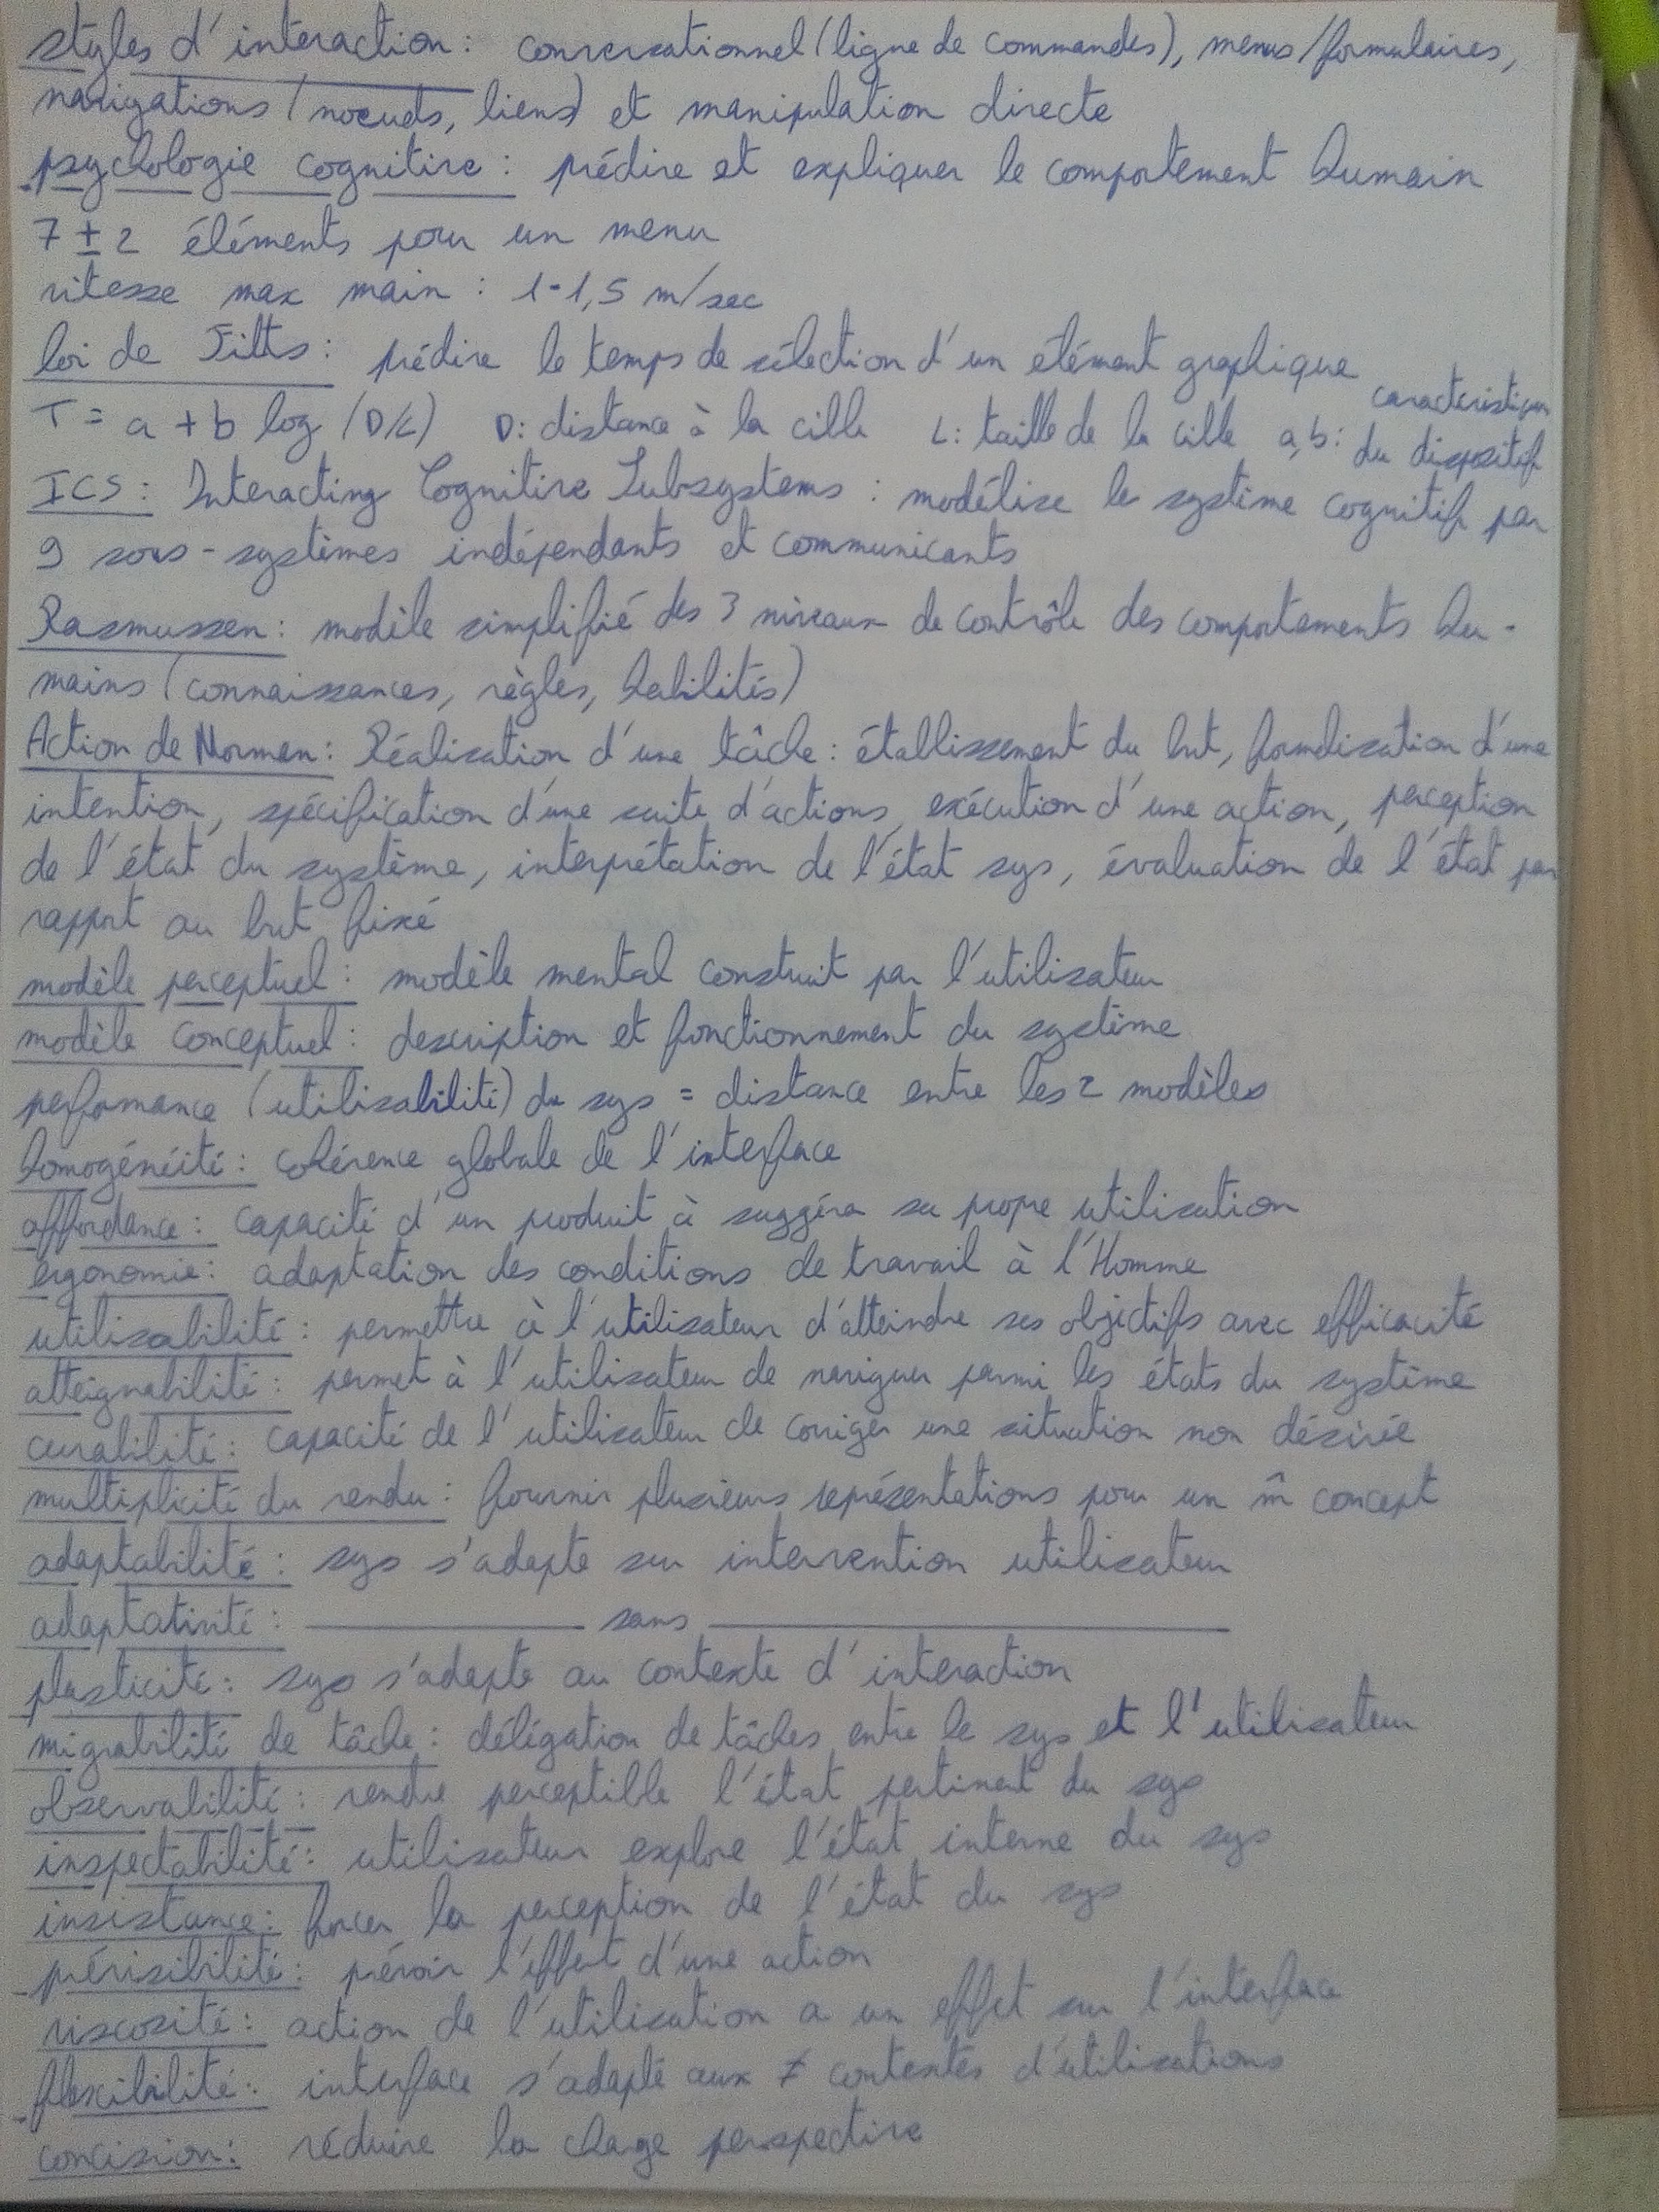 styles d'interaction : conversationnel (ligne de commandes), menus/formulaires,
navigations (noeuds, liens) et manipulation directe
psychologie cognitive : prédire et expliquer le comportement humain
7 ± 2 éléments pour un menu
vitesse max main : 1-1,5 m/sec
loi de Fitts : prédire le temps de sélection d'un élément graphique
T = a + b log (D/L) D : distance à la cible L : taille de la cible a,b : caractéristiques du dispositif
ICS : Interacting Cognitive Subsystems : modélise le système cognitif par
9 sous-systèmes indépendants et communicants
Rasmussen : modèle simplifié des 3 niveaux de contrôle des comportements hu-
mains (connaissances, règles, habilités)
Action de Norman : Réalisation d'une tâche : établissement du but, formalisation d'une
intention, spécification d'une suite d'actions, exécution d'une action, perception
de l'état du système, interprétation de l'état sys, évaluation de l'état par
rapport au but fixé
modèle perceptuel : modèle mental construit par l'utilisateur
modèle conceptuel : description et fonctionnement du système
performance (utilisabilité) du sys = distance entre les 2 modèles
homogénéité : cohérence globale de l'interface
affordance : capacité d'un produit à suggérer sa propre utilisation
ergonomie : adaptation des conditions de travail à l'Homme
utilisabilité : permettre à l'utilisateur d'atteindre ses objectifs avec efficacité
atteignabilité : permet à l'utilisateur de naviguer parmi les états du système
curabilité : capacité de l'utilisateur de corriger une situation non désirée
multiplicité du rendu : fournir plusieurs représentations pour un m̂ concept
adaptabilité : sys s'adapte sur intervention utilisateur
adaptativité : ———— sans ————
plasticité : sys s'adapte au contexte d'interaction
migrabilité de tâche : délégation de tâches entre le sys et l'utilisateur
observabilité : rendre perceptible l'état pertinent du sys
inspectabilité : utilisateur explore l'état interne du sys
insistance : forcer la perception de l'état du sys
prévisibilité : prévoir l'effet d'une action
viscosité : action de l'utilisation a un effet sur l'interface
flexibilité : interface s'adapte aux ≠ contextes d'utilisations
concision : réduire la charge perspective